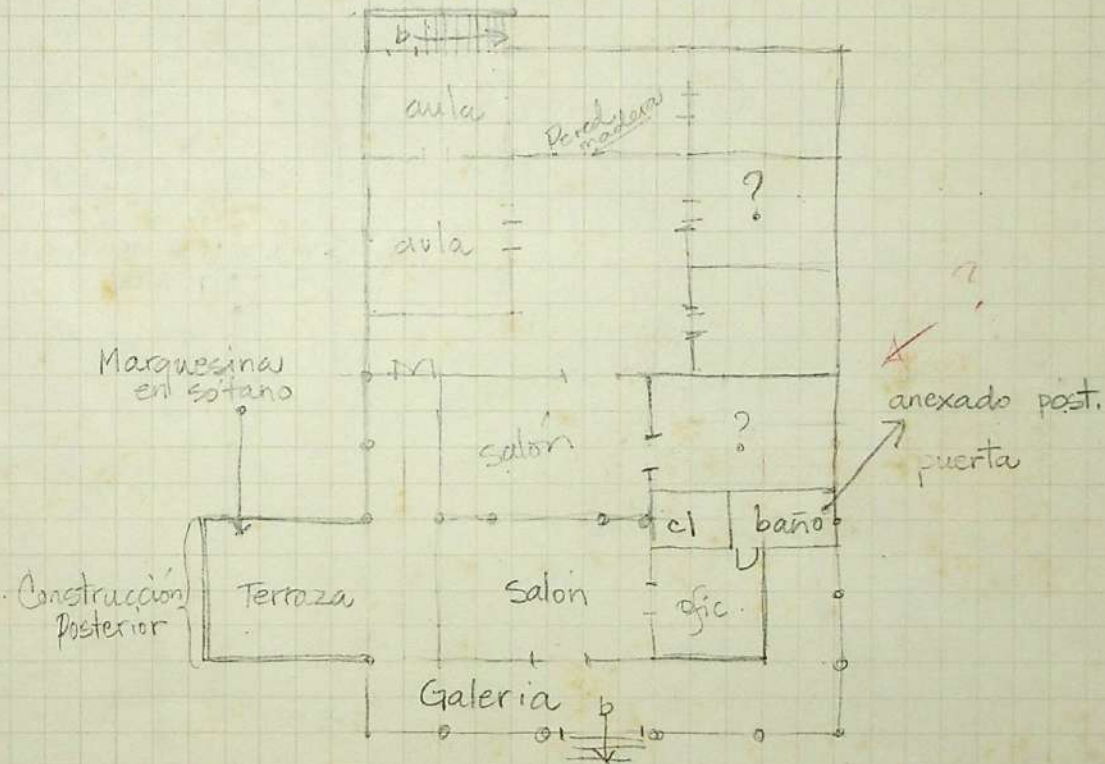 b
aula
Pared
madera
?
aula
?
Marquesina
en sótano
anexado post.
puerta
salón
?
cl
baño
Construcción
Posterior
Terraza
Salon
ofic.
Galeria
b